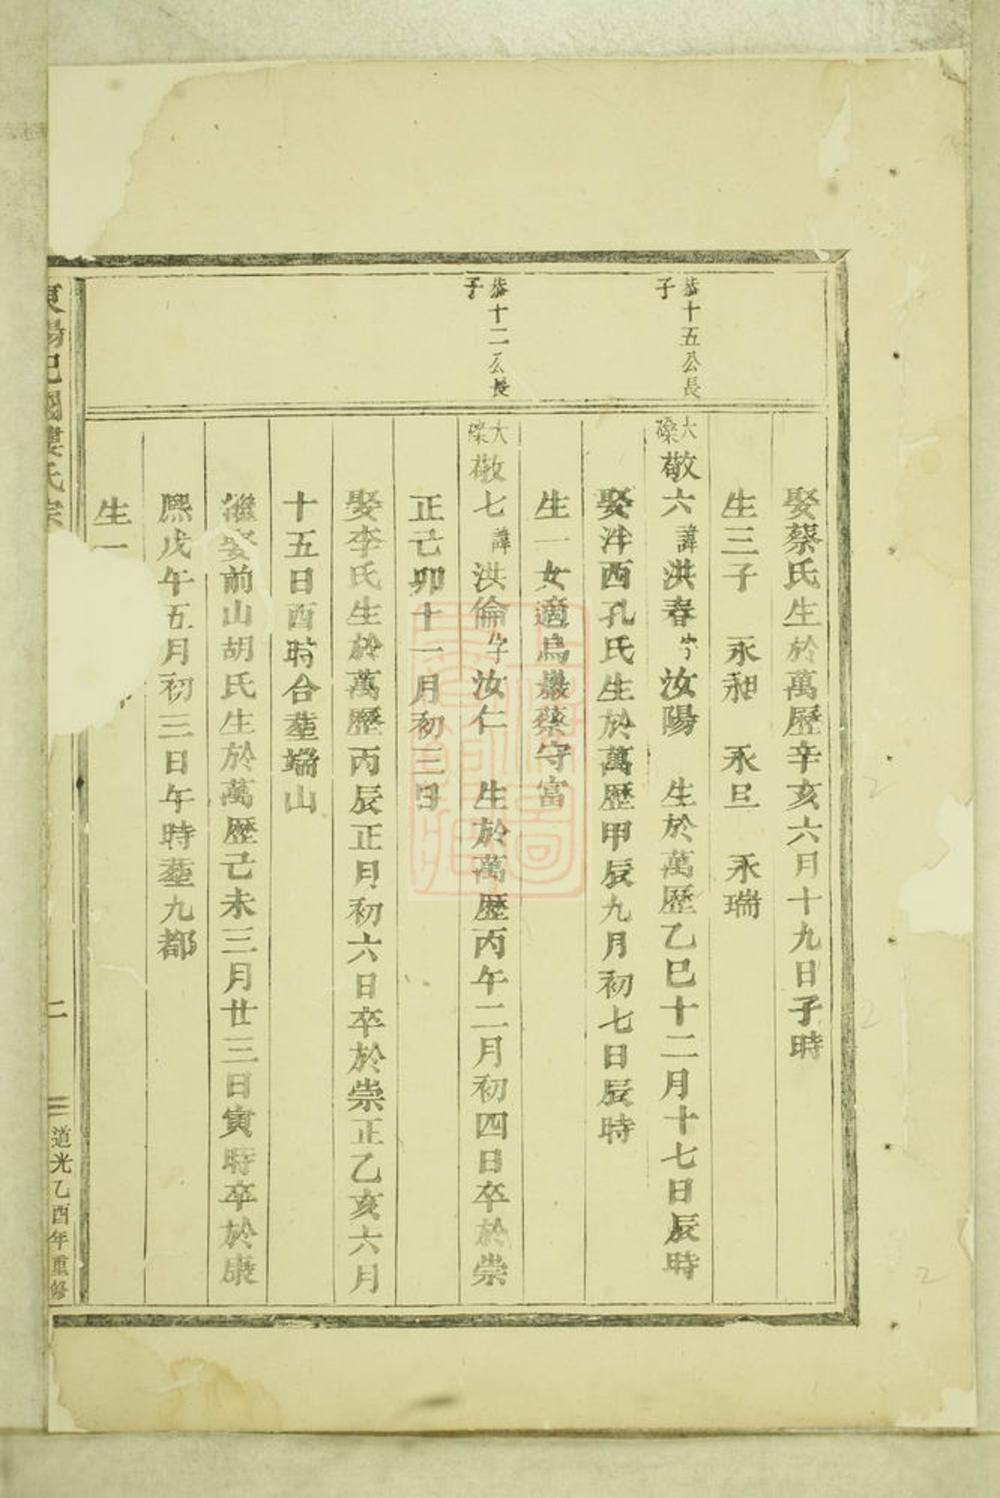 娶蔡氏生於萬歷辛亥六月十九日子時
生三子 永昶 永旦 永瑞
恭十五公長子
大磉敬六諱洪春字汝陽 生於萬歷乙巳十二月十七日辰時
娶泮西孔氏生於萬歷甲辰九月初七日辰時
生一女適烏巖蔡守富
恭十二公長子
大磉敬七諱洪倫字汝仁 生於萬歷丙午二月初四日卒於崇
正己卯十一月初三日
娶李氏生於萬歷丙辰正月初六日卒於崇正乙亥六月
十五日酉時合塟端山
繼娶前山胡氏生於萬歷己未三月廿三日寅時卒於康
熈戊午五月初三日午時塟九都
生一
東陽巳國婁氏宗
二
道光乙酉年重修